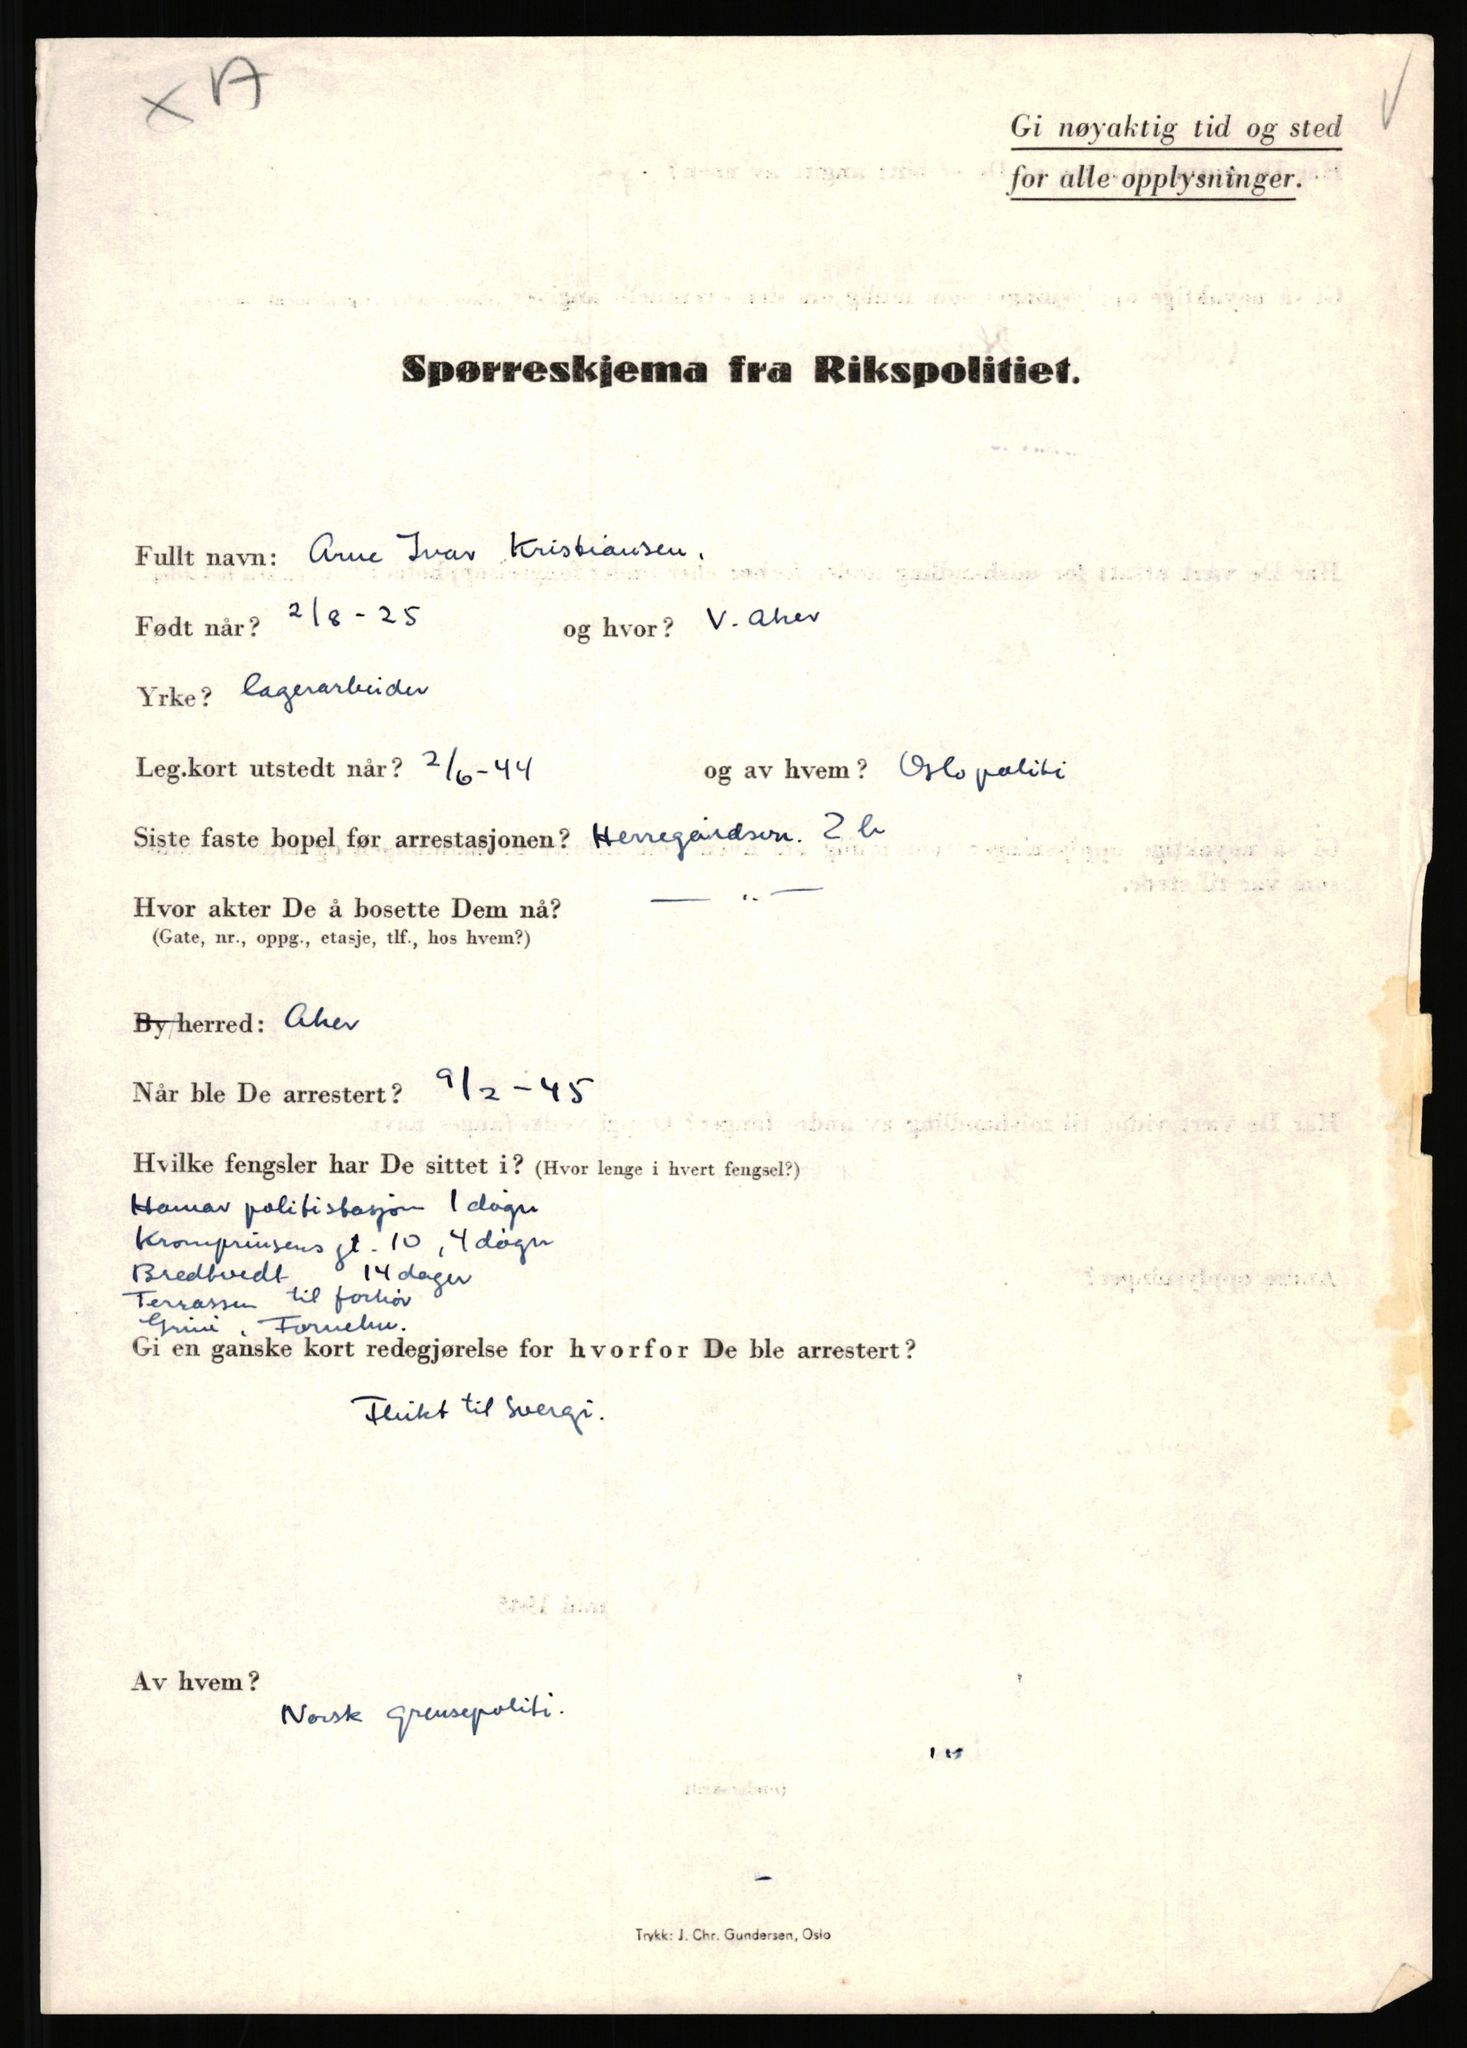 X A
Gi nøyaktig tid og sted
for alle opplysninger.
Spørreskjema fra Rikspolitiet.
Fullt navn: Arne Ivar Kristiansen.
Født når? 2/8-25 og hvor? V. Aker
Yrke? lagerarbeider
Leg.kort utstedt når? 2/6-44 og av hvem? Oslo politi
Siste faste bopel før arrestasjonen? Herregårdsvn. 2 b
Hvor akter De å bosette Dem nå? — " —
(Gate, nr., oppg., etasje, tlf., hos hvem?)
By/herred: Aker
Når ble De arrestert? 9/2-45
Hvilke fengsler har De sittet i? (Hvor lenge i hvert fengsel?)
Hamar politistasjon 1 døgn
Kromprinsens gt. 10, 4 døgn
Bredtvedt 14 dager
Terrassen til forhør
Grini, Fornebu.
Gi en ganske kort redegjørelse for hvorfor De ble arrestert?
Flukt til Svergi.
Av hvem?
Norsk grensepoliti.
Trykk: J. Chr. Gundersen, Oslo